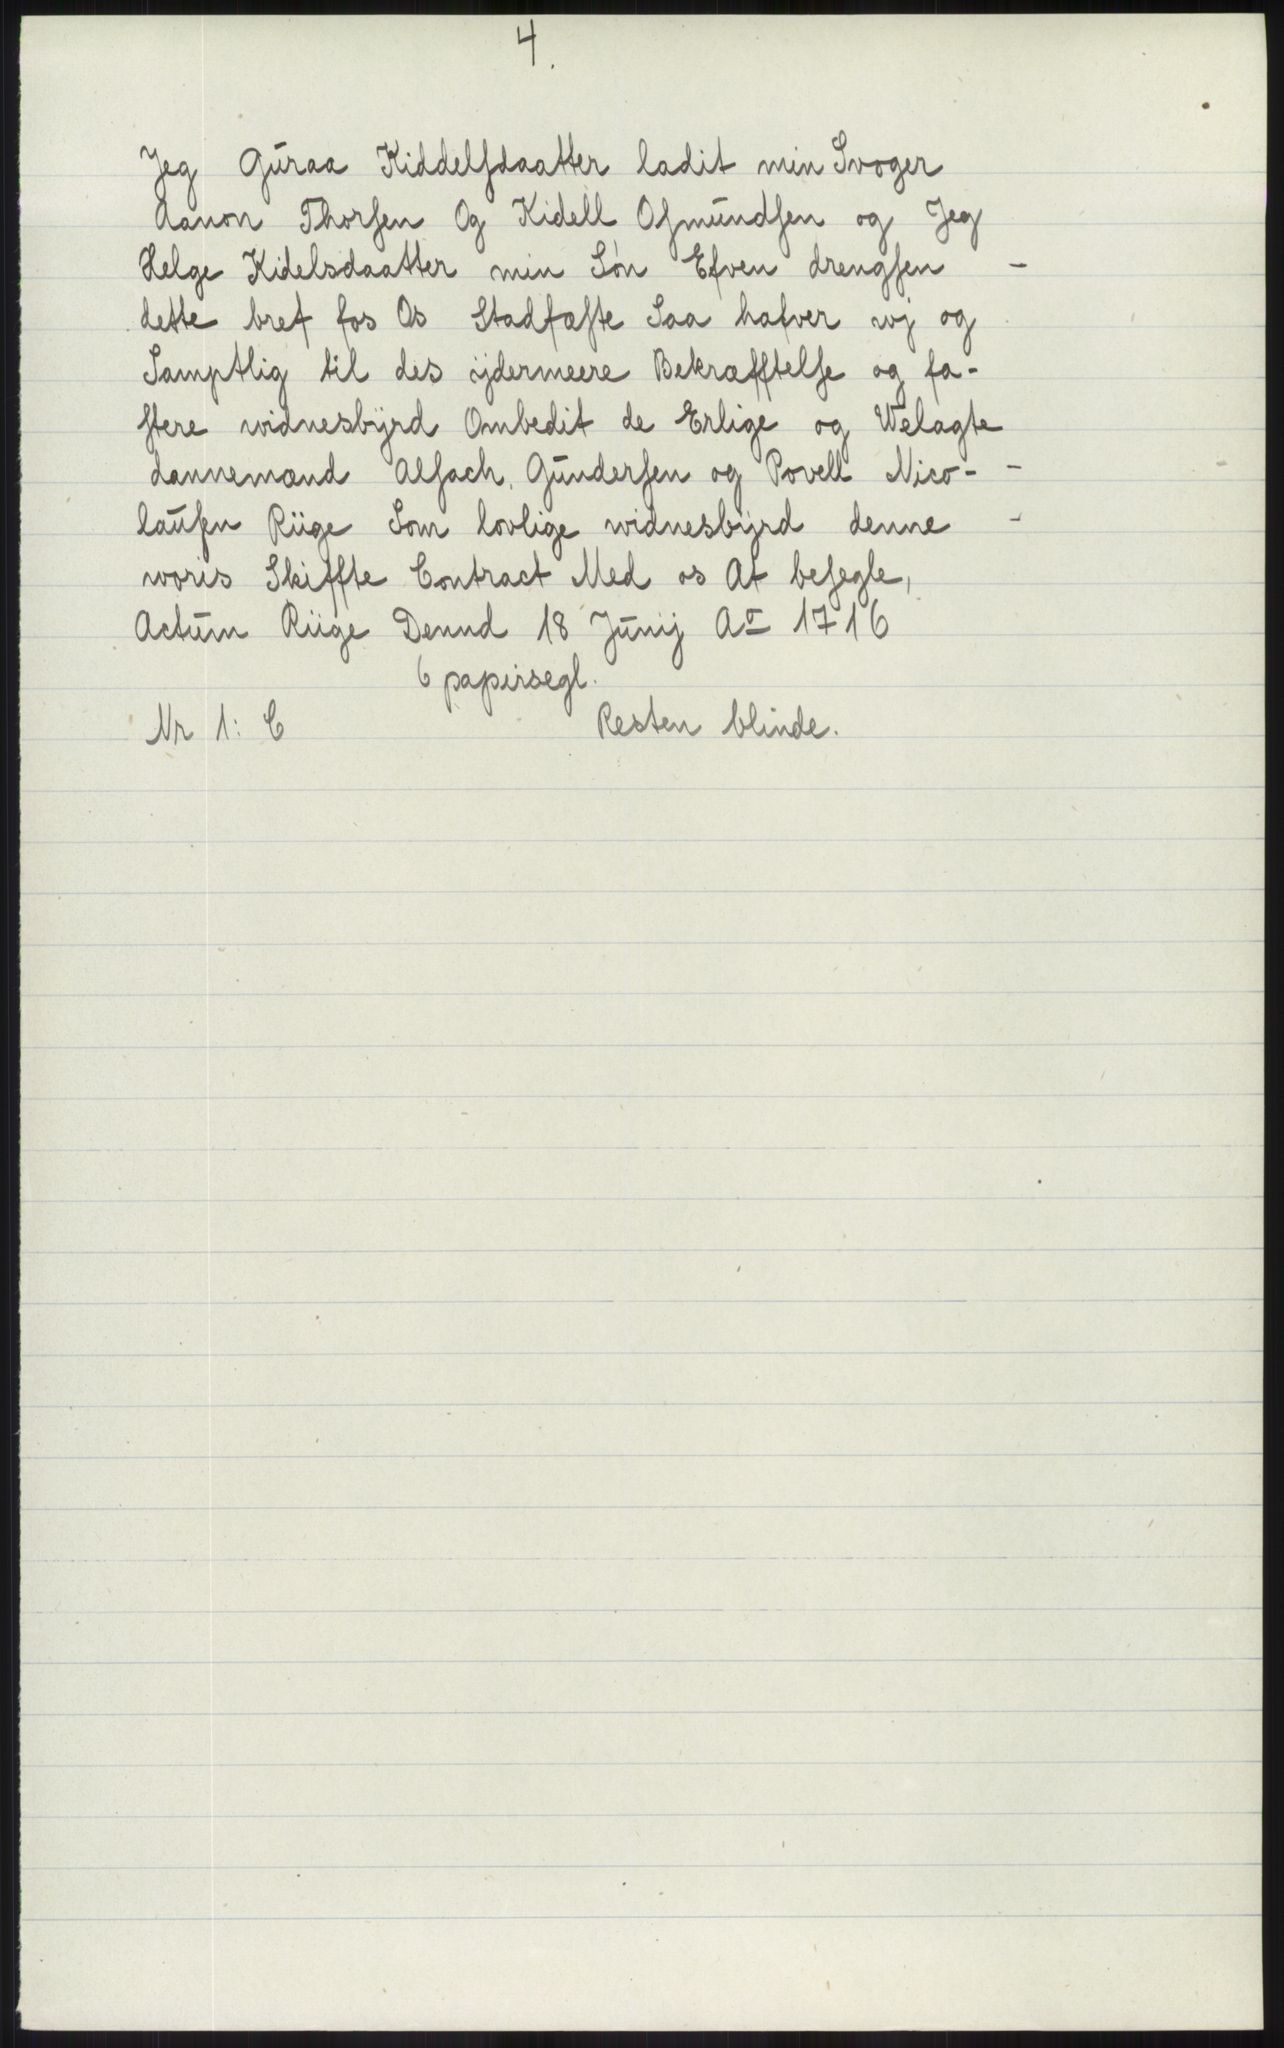 4.
Jeg Guraa Kiddelsdaatter ladit min Svoger
Aanon Thorsen Og Kidell Osmundsen og Jeg
Helge Kidelsdaatter min Søn Efven drengsen -
dette bref fos Os Stadfæste Saa hafver wj og
Samptlig til des ÿdermeere Bekræfftelse og fa-
stere widnesbÿrd Ombedit de Erlige og Welagte
dannemænd Alsach. Gundersen og Povell Nico- -
lausen Riige Som lovlige widnesbÿrd denne -
woris Skiffte Contract Med os At besegle,
Actum Riige Dennd 18 Junij Aº 1716
6 papirsegl.
Nr 1: C Resten blinde.